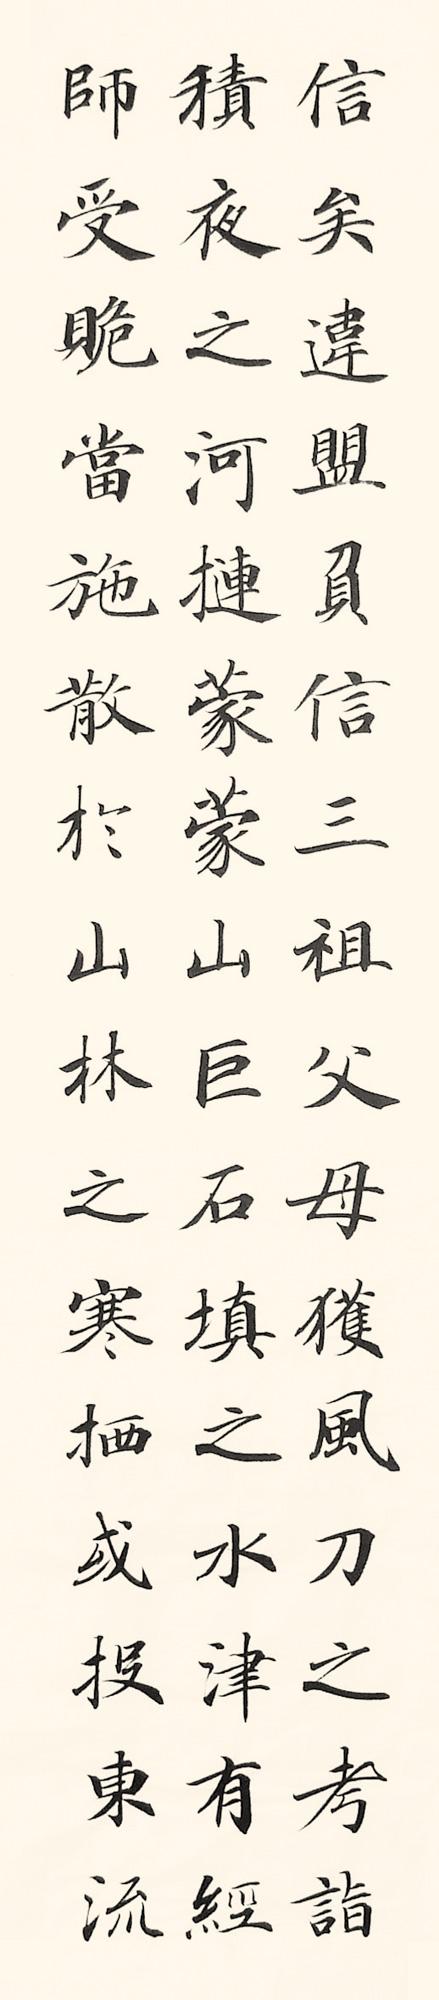 信矣違盟負信三祖父母獲風刀之考詣
積夜之河摙蒙蒙山巨石填之水津有經
師受贍當施散於山林之寒栖或投東流